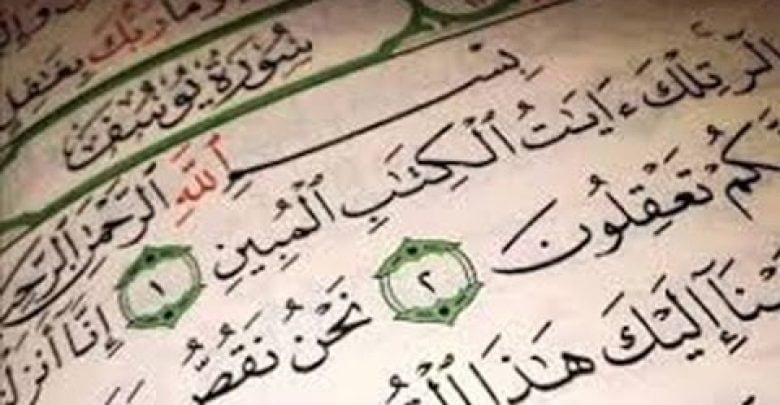 وما ربك بغفل
سورة يوسف
بسم الله الرحمن الرحيم
الٓر تلك ءايت الكتب المبين ١ إنا أنزل
كم تعقلون ٢ نحن نقص
إليك هذا